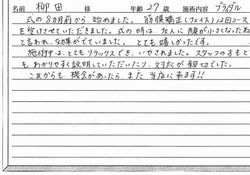 名前 柳田 様 年齢 27 歳 施術内容 ブライダル
式の8カ月前から始めました。筋膜矯正(フェイス)12回コース
を受けさせていただきました。式の時は、友人に顔が小さくなったね
と言われ、効果がでていました。とても嬉しかったです。
施術中は、とてもリラックスでき、いやされました。スタッフの方もとて
もわかりやすく説明していただいたり、対応が親切でした。
これからも機会があったら、また当店に来ます!!